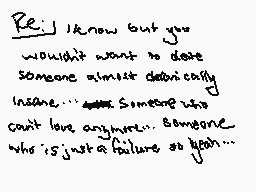 Re: I know but you
wouldn't want to date
someone almost clinically
insane... Someone who
can't love anymore... Someone
who is just a failure so yeah...